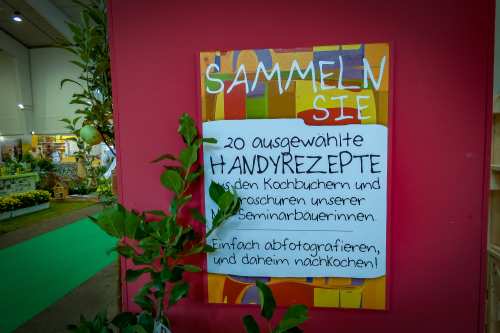 SAMMELN
SIE
20 ausgewählte
HANDYREZEPTE
aus den Kochbüchern und
Broschüren unserer
Seminarbäuerinnen.
Einfach abfotografieren,
und daheim nachkochen!